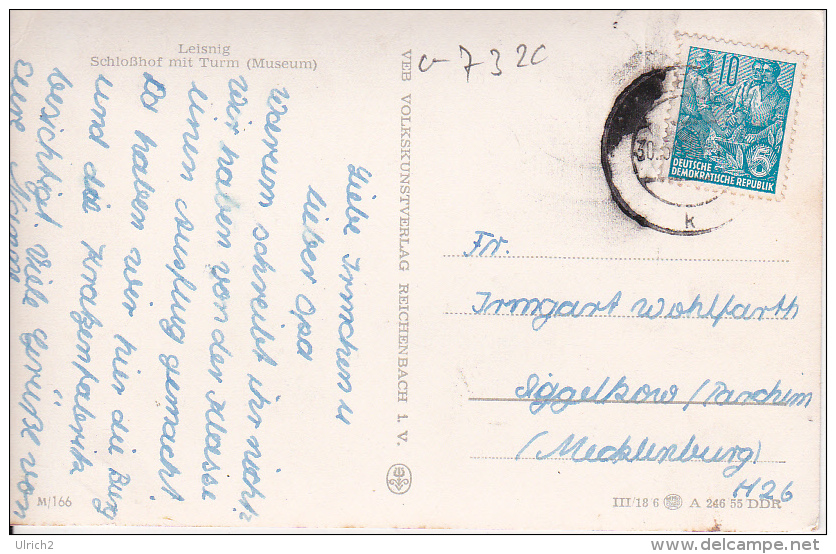 Leisnig
Schloßhof mit Turm (Museum)
Liebe Irmchen u
lieber Opa
Warum schreibt ihr nicht?
Wir haben von der Klasse
einen Ausflug gemacht
Da haben wir hier die Burg
und die Kratzenfabrik
besichtigt. Viele Grüße von
eure
M/166
VEB VOLKSKUNSTVERLAG REICHENBACH I. V.
a-7320
10
5
DEUTSCHE
DEMOKRATISCHE REPUBLIK
30.
k
Fr.
Irmgart Wohlfarth
Siggelkow/Parchim
(Mecklenburg)
H26
III/18 6 A 246 55 DDR
Ulrich2
http://www.delcampe.net